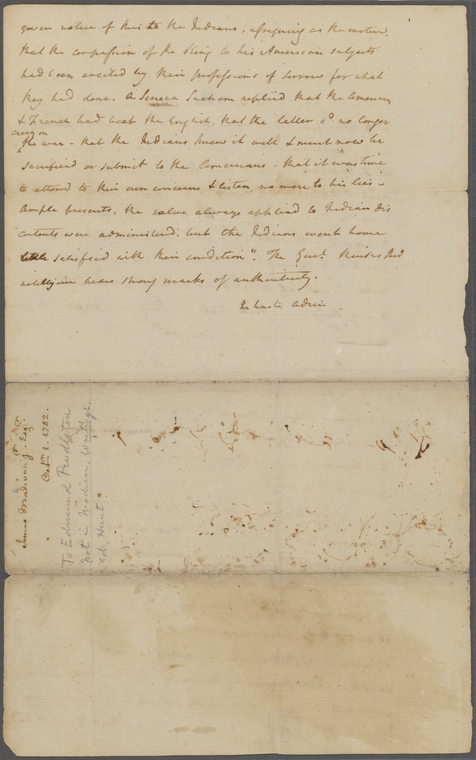 given notice of this to the Indians, assigning as the motive,
that the compassion of the King to his American subjects
had been excited by their professions of sorrow for what
they had done. A Seneca Sachem replied that the Americans
& French had beat the English, that the latter cd no longer
carry on
the war - that the Indians knew it well & must now be
sacrificed or submit to the Americans - that it was time
to attend to their own concerns & listen no more to his lies -
Ample presents, the salve always applied to Indian dis
contents were administered; but the Indians went home
little satisfied with their condition". The Genl. thinks this
intelligence bears strong marks of authenticity.
In haste adieu
James Madison Jr. Esqr
Octr. 1. 1782.
To Edmund Pendleton
Not in Madison, Writings,
ed. Hunt